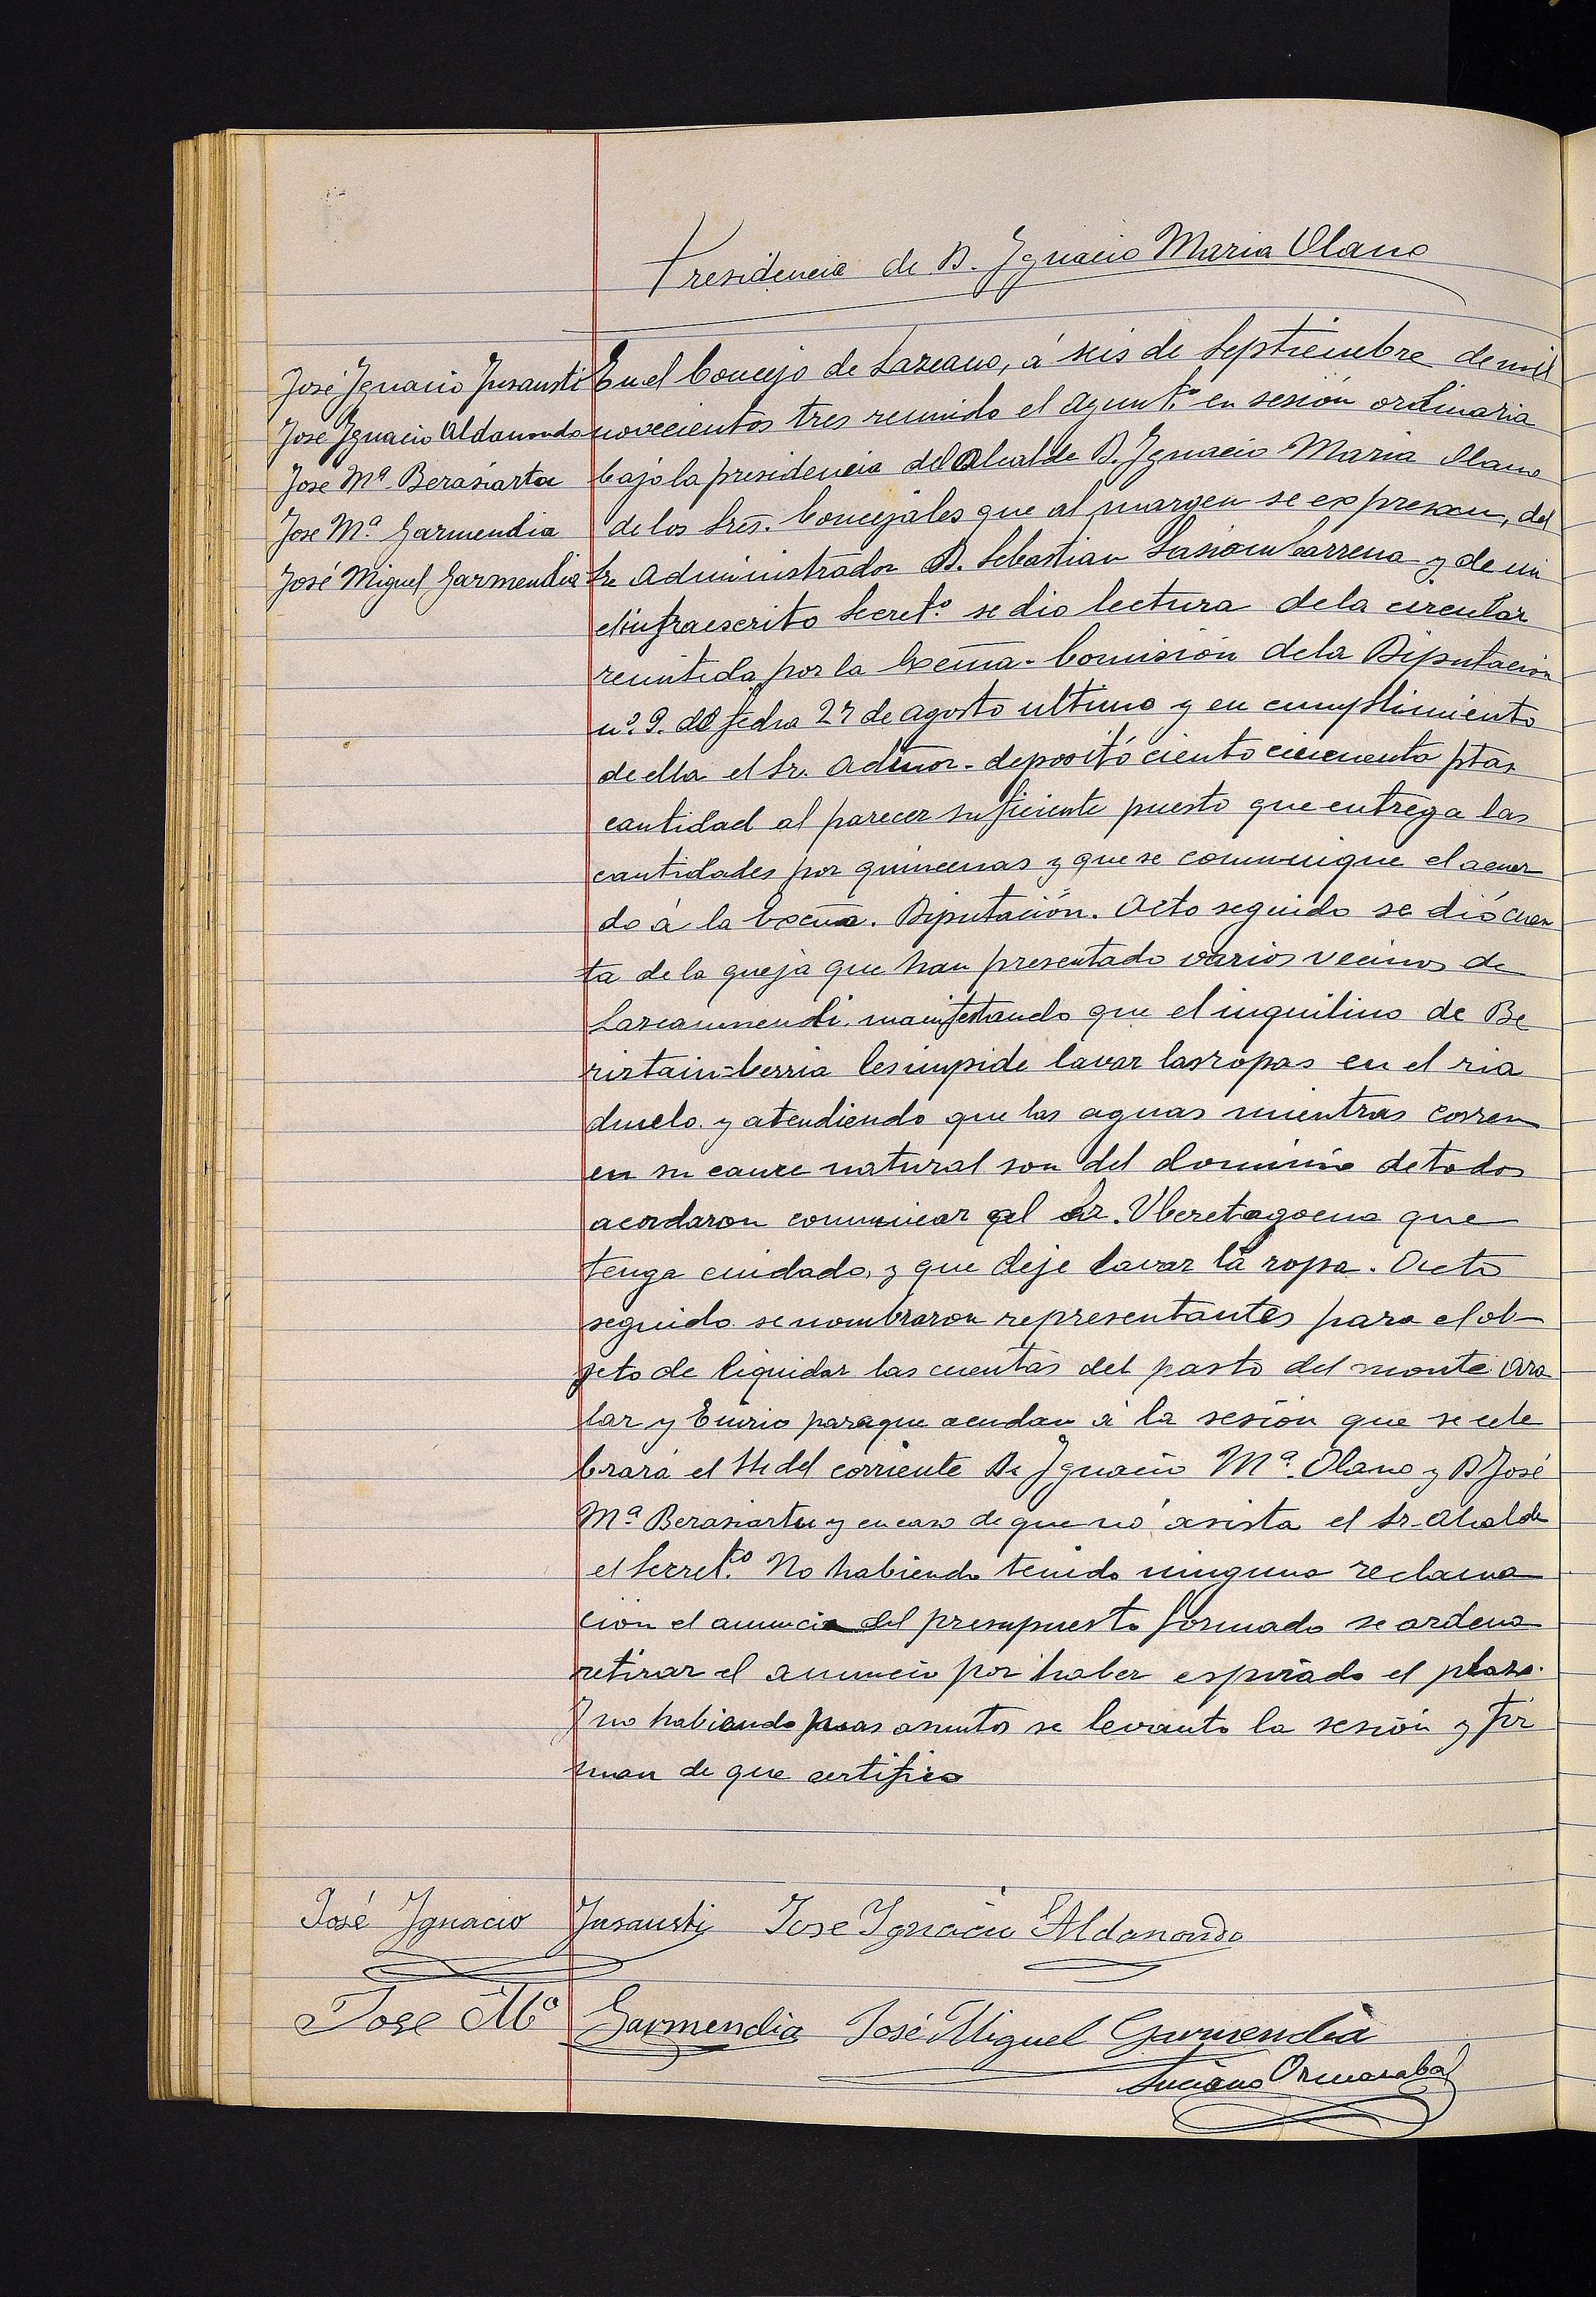 Presidencia de D. Ygnacio Maria Olano
José Ygnacio Ynsausti
José Ygnacio Aldanondo
José Mª Berasiartu
Jose Mª Garmendia
José Miguel Garmendia
En el Concejo de Lazcano, á seis de Septiembre de mil
novecientos tres reunido el Ayunt.º en sesión ordinaria
bajo la presidencia del Alcalde D. Ygnacio Maria Olano
de los Sres. Concejales que al margen se expresan, del
Sr Administrador D. Sebastian Lasiombarrena y de mi
el infraescrito Secret.º se dio lectura de la circular
remitida por la Excma. Comisión de la Diputacion
nº 9. de fecha 27 de agosto ultimo y en cumplimiento
de ella el Sr. Admor. depositó ciento cincuenta ptas
cantidad al parecer suficiente puesto que entrega las
cantidades por quincenas y que se comunique el acuer
do á la Excma. Diputación. Acto seguido se dió cuen
ta de la queja que han presentado varios vecinos de
Lazcanmendi manifestando que el inquilino de Be
ristain=berria les impide lavar las ropas en el ria
chuelo y atendiendo que las aguas mientras corren
en su cauce natural son del dominio de todos
acordaron comunicar al Sr. Uberetagoena que
tenga cuidado, y que deje lavar la ropa. Acto
seguido se nombraron representantes para el ob-
jeto de liquidar las cuentas del pasto del monte Ara
lar y Enirio para que acudan á la sesión que se cele
brará el 14 del corriente D. Ygnacio Mª Olano y D José
Mª Berasiartu y en caso de que no asista el Sr. Alcalde
el Secret.º No habiendo tenido ninguna reclama
ción el anuncio del presupuesto formado se ordena
retirar el anuncio por haber espirado el plazo.
Y no habiendo mas asuntos se levanto la sesión y fir
man de que certifico
José Ygnacio Ynsausti Jose Ygnacio Aldanondo
Jose Mª Garmendia José Miguel Garmendia
Luciano Ormazabal